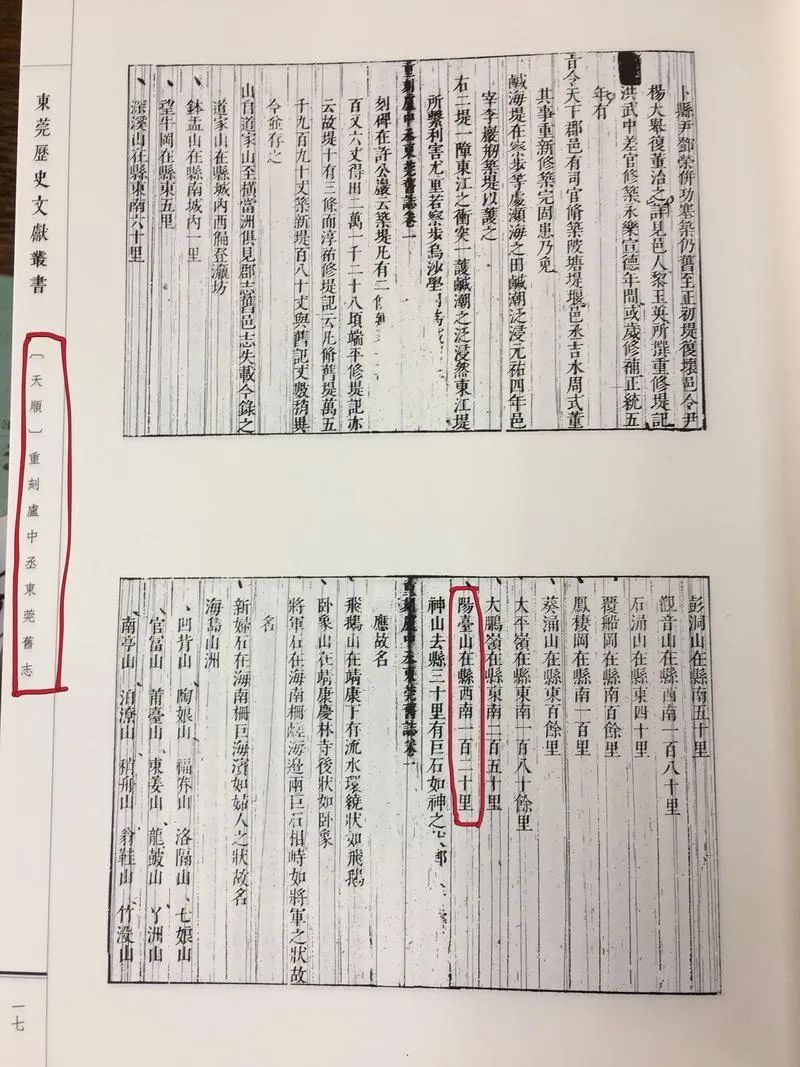 卜縣尹鄧榮併功塞築仍舊至正初堤復壞邑令尹
楊大舉復董治之詳見邑人黎玉英所撰重修堤記
洪武中差官修築永樂宣德年間或歲修補正統五
年有
旨令天下郡邑有司官脩築陂塘堤堰邑丞吉水周式董
其事重新修築完固患乃免
鹹海堤在寮步等處瀕海之田鹹潮泛浸元祐四年邑
宰李巖剏築堤以護之
右二堤一障東江之衝突一護鹹潮之泛浸然東江堤
所繫利害尤重若寮步烏沙
重刻盧中丞東莞舊誌卷一
刻碑在許公巖云築堤凡有二
百又六丈得田二萬一千二十八頃端平修堤記亦
云故堤十有三條而淳祐修堤記云凡脩舊堤萬五
千九百九十丈築新堤百八十丈與舊記丈數稍異
今並存之
山自道家山至橫當洲俱見郡志舊邑志失載今錄之
道家山在縣城內西隅登瀛坊
鉢盂山在縣南城內一里
望牛岡在縣東五里
深溪山在縣東南六十里
彭洞山在縣南五十里
觀音山在縣西南一百八十里
石涌山在縣東四十里
覆船岡在縣南百餘里
鳳棲岡在縣南一百里
葵涌山在縣東百餘里
大平嶺在縣東南一百八十餘里
大鵬嶺在縣東南二百五十里
陽臺山在縣西南一百二十里
神山去縣三十里有巨石如神之
重刻盧中丞東莞舊誌卷一
應故名
飛鵝山在靖康下有流水環繞狀如飛鵝
卧象山在靖康慶林寺後狀如卧象
將軍石在海南柵鹹海迯兩巨石相峙如將軍之狀故
名
新婦石在海南柵巨海濱如婦人之狀故名
海島山洲
凹背山 陶娘山 福莽山 洛隔山 七娘山
官富山 莆臺山 東姜山 龍皷山 丫洲山
南亭山 泊潦山 稍舟山 翁鞋山 竹没山
東莞歷史文獻叢書
〔天順〕重刻盧中丞東莞舊志
一七